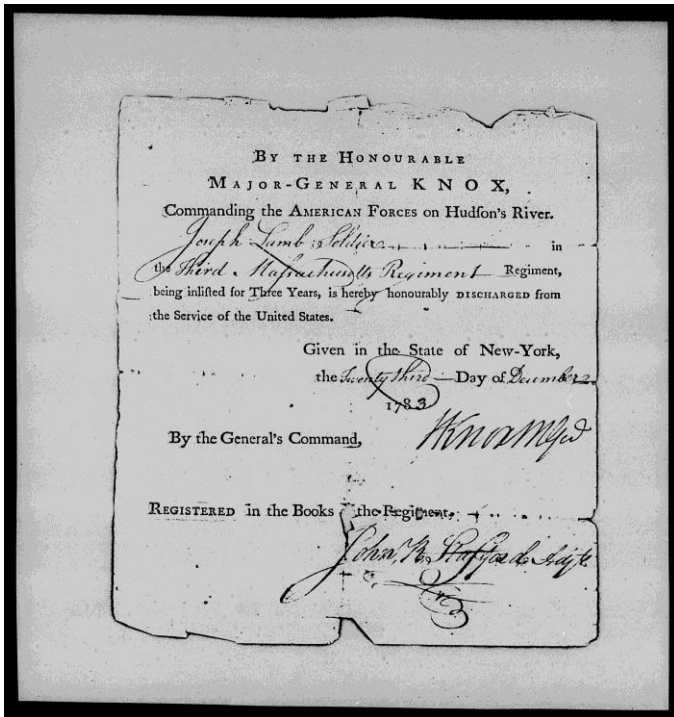 BY THE HONOURABLE
MAJOR-GENERAL KNOX,
Commanding the AMERICAN FORCES on Hudson's River.
Joseph Lamb Soldier in
the Third Massachusetts Regiment Regiment,
being inlisted for Three Years, is hereby honourably DISCHARGED from
the Service of the United States.
Given in the State of New-York,
the Twenty third Day of December
1783
By the General's Command,
HKnox MGen
REGISTERED in the Books the Regiment,
John K. Stafford Adjt.